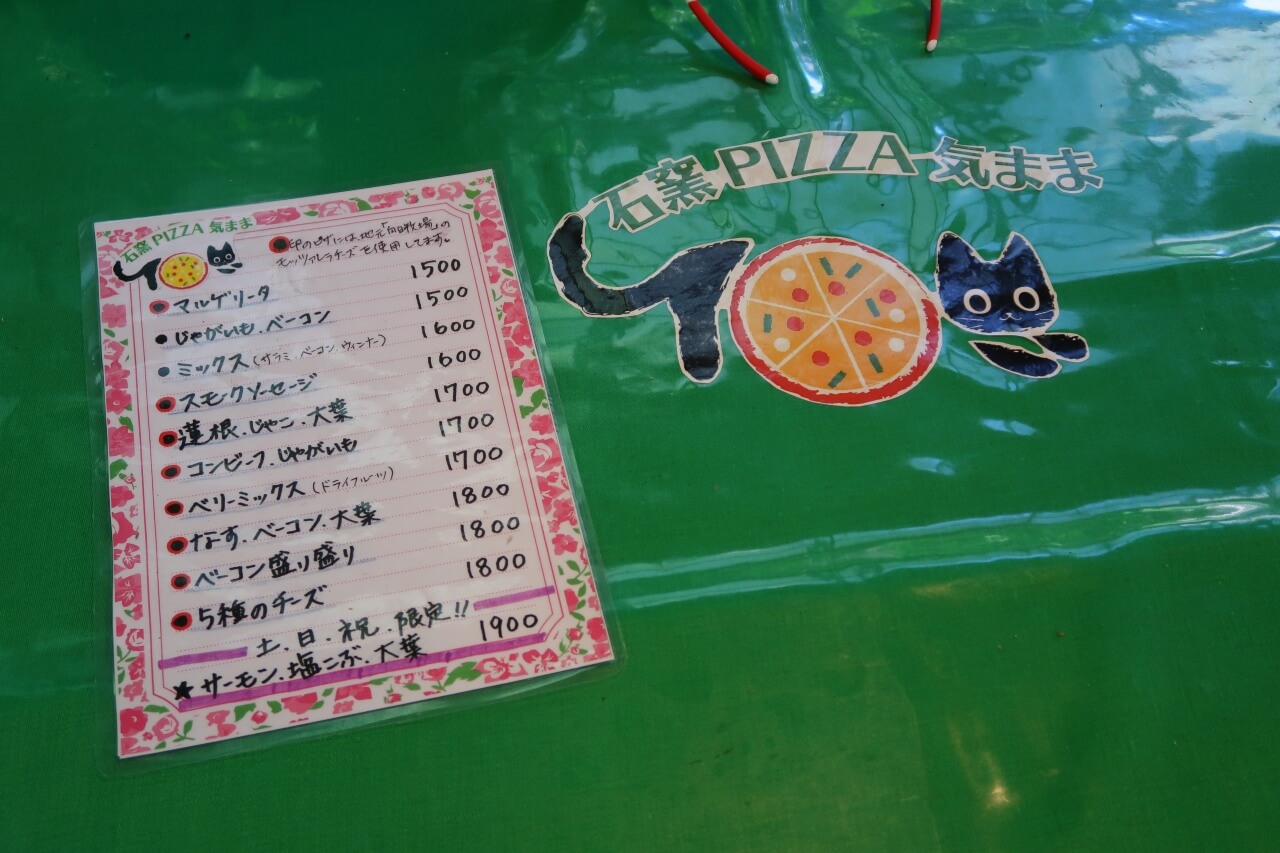 石窯 PIZZA 気まま
石窯 PIZZA 気まま
印のピザには、地元「向日牧場」の
モッツァレラチーズを使用してます。
マルゲリータ 1500
じゃがいも、ベーコン 1500
ミックス(サラミ、ベーコン、ウィンナー) 1600
スモークソーセージ 1600
蓮根、じゃこ、大葉 1700
コンビーフ、じゃがいも 1700
ベリーミックス(ドライフルーツ) 1700
なす、ベーコン、大葉 1800
ベーコン盛り盛り 1800
5種のチーズ 1800
土、日、祝、限定!!
★サーモン、塩こぶ、大葉 1900